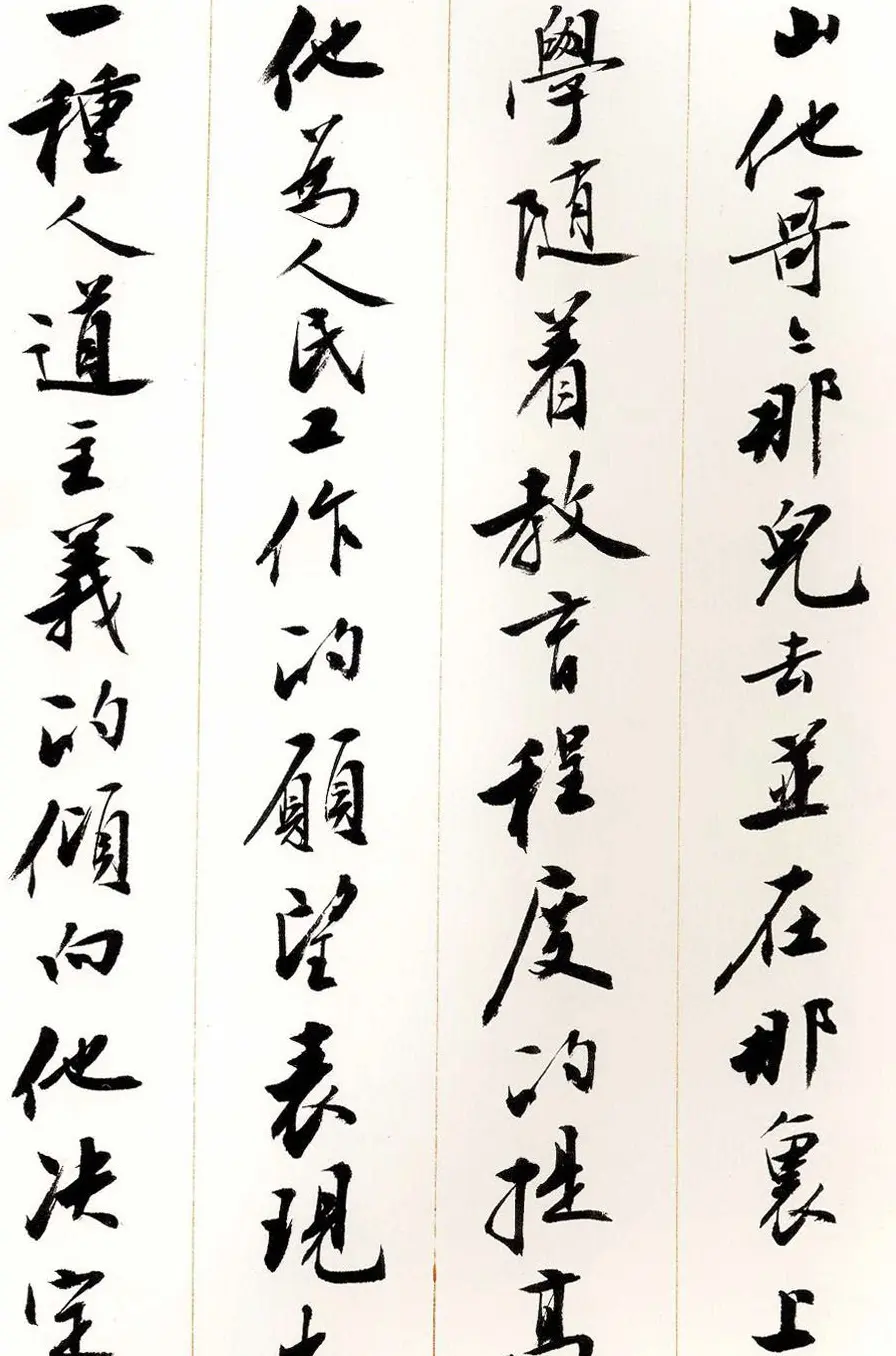 山他哥〻那兒去並在那裏上
學随着教育程度的提高
他為人民工作的願望表現出
一種人道主義的傾向他决定